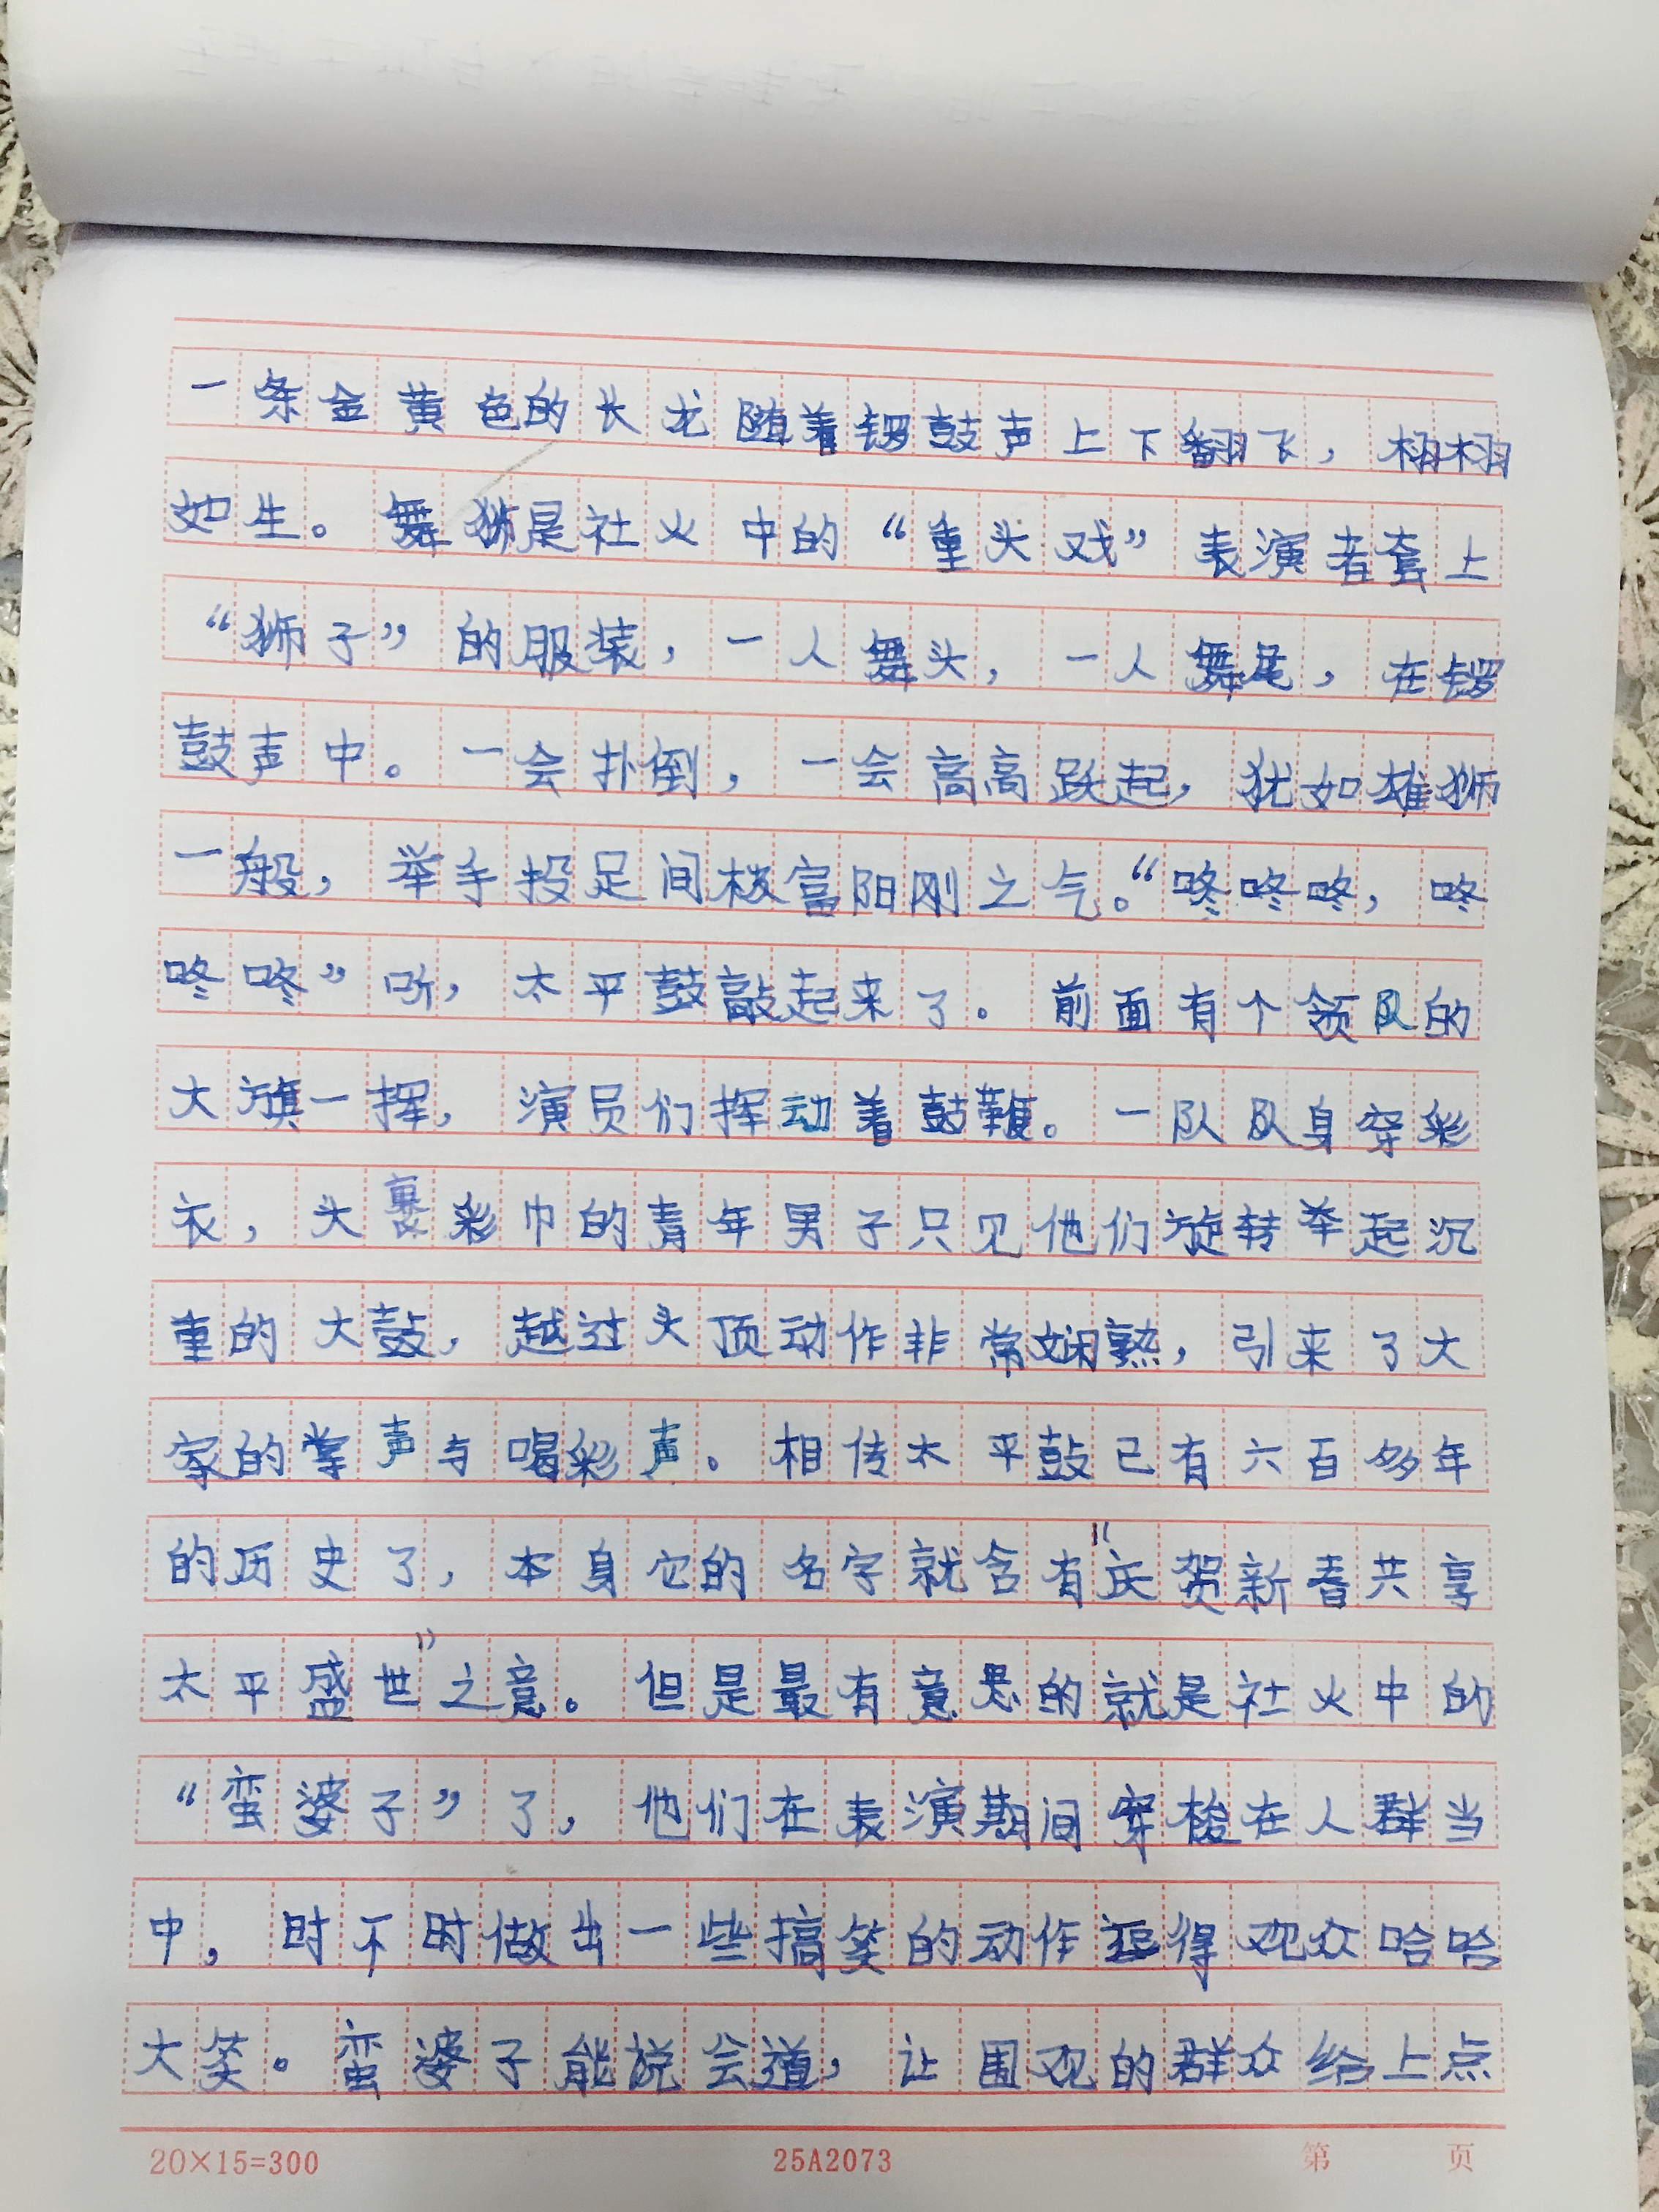 一条金黄色的长龙随着锣鼓声上下翻飞，栩栩
如生。舞狮是社火中的“重头戏”表演者套上
“狮子”的服装，一人舞头，一人舞尾，在锣
鼓声中。一会扑倒，一会高高跃起，犹如雄狮
一般，举手投足间极富阳刚之气。“咚咚咚，咚
咚咚”听，太平鼓敲起来了。前面有个领队的
大旗一挥，演员们挥动着鼓鞭。一队队身穿彩
衣，头裹彩巾的青年男子只见他们旋转举起沉
重的大鼓，越过头顶动作非常娴熟，引来了大
家的掌声与喝彩声。相传太平鼓已有六百多年
的历史了，本身它的名字就含有“庆贺新春共享
太平盛世”之意。但是最有意思的就是社火中的
“蛮婆子”了，他们在表演期间穿梭在人群当
中，时不时做出一些搞笑的动作逗得观众哈哈
大笑。蛮婆子能说会道，让围观的群众给上点
20×15=300 25A2073 第 页